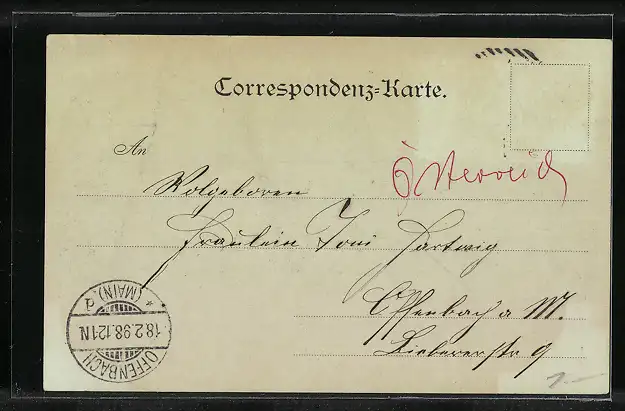 Correspondenz-Karte.
An
Österreich
Wolgeboren
Fräulein Toni Hartwig
Offenbach a M.
Biebererstr 9
OFFENBACH
18.2.98.12-1N
(MAIN)